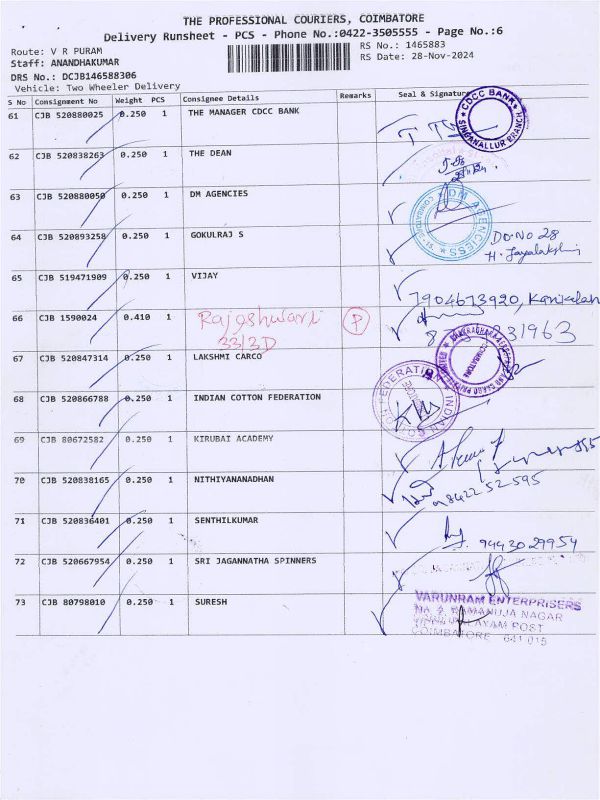 THE PROFESSIONAL COURIERS, COIMBATORE
Delivery Runsheet - PCS - Phone No.:0422-3505555 - Page No.:6
Route: V R PURAM
RS No.: 1465883
Staff: ANANDHAKUMAR
RS Date: 28-Nov-2024
DRS No.: DCJB146588306
Vehicle: Two Wheeler Delivery
S No Consignment No Weight PCS Consignee Details Remarks Seal & Signature
61 CJB 520880025 0.250 1 THE MANAGER CDCC BANK
CDCC BANK
SINGANALLUR BRANCH
62 CJB 520838263 0.250 1 THE DEAN
63 CJB 520880050 0.250 1 DM AGENCIES
DM AGENCIES
64 CJB 520893258 0.250 1 GOKULRAJ S
Do.No 28
H. Jayalakshmi
65 CJB 519471909 0.250 1 VIJAY
7904673920, Kanikalan
66 CJB 1590024 0.410 1 Rajeshwari P
33/3D
67 CJB 520847314 0.250 1 LAKSHMI CARCO
COIMBATORE
68 CJB 520866788 0.250 1 INDIAN COTTON FEDERATION
INDIAN COTTON FEDERATION
69 CJB 80672582 0.250 1 KIRUBAI ACADEMY
70 CJB 520838165 0.250 1 NITHIYANANADHAN
98422 52 595
71 CJB 520836401 0.250 1 SENTHILKUMAR
9443029954
72 CJB 520667954 0.250 1 SRI JAGANNATHA SPINNERS
73 CJB 80798010 0.250 1 SURESH
VARUNRAM ENTERPRISERS
RAMANUJA NAGAR
POST
COIMBATORE 641 015